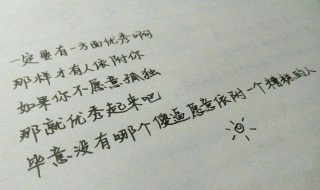 一定要有一方面优秀啊
那样才有人依附你
如果你不愿意孤独
那就优秀起来吧
毕竟没有哪个傻逼愿意依附一个糟糕的人